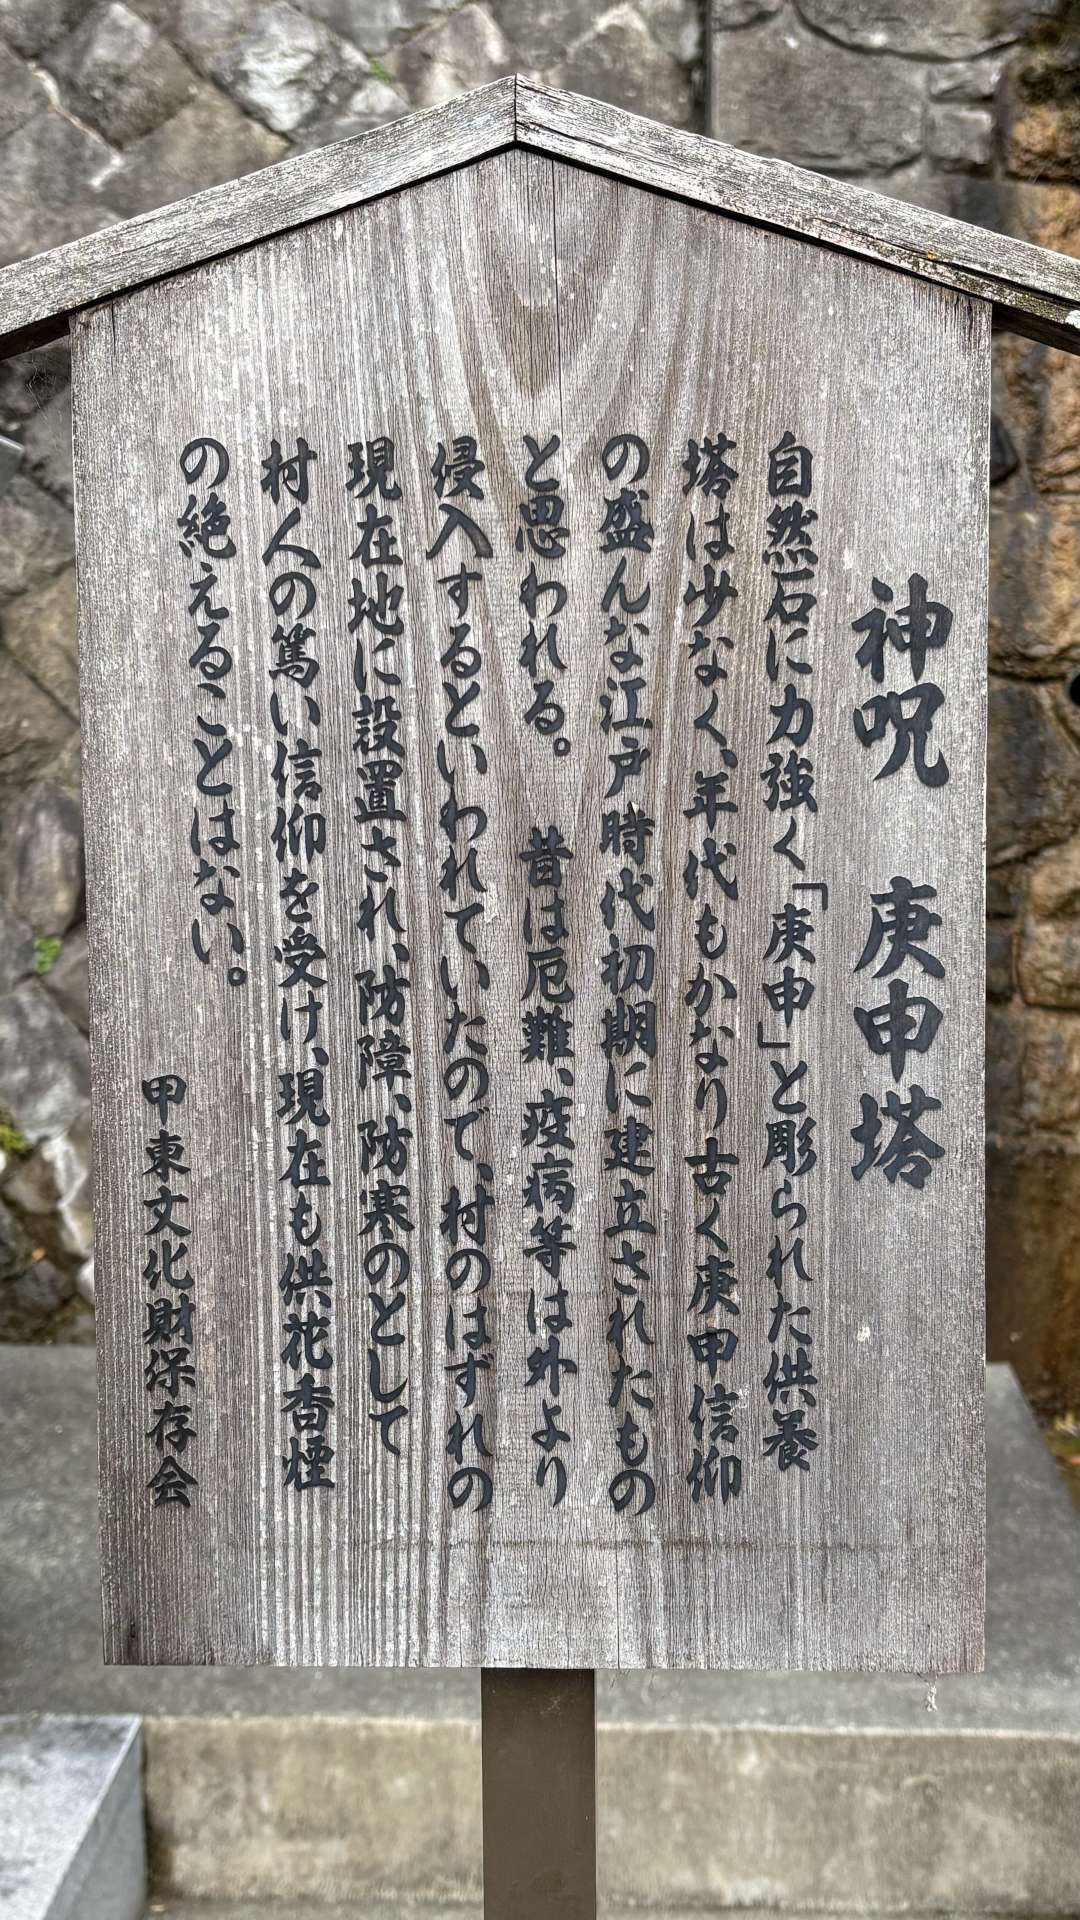 神呪 庚申塔
自然石に力強く「庚申」と彫られた供養
塔は少なく、年代もかなり古く庚申信仰
の盛んな江戸時代初期に建立されたもの
と思われる。 昔は厄難、疫病等は外より
侵入するといわれていたので、村のはずれの
現在地に設置され、防障、防寒のとして
村人の篤い信仰を受け、現在も供花香煙
の絶えることはない。
甲東文化財保存会